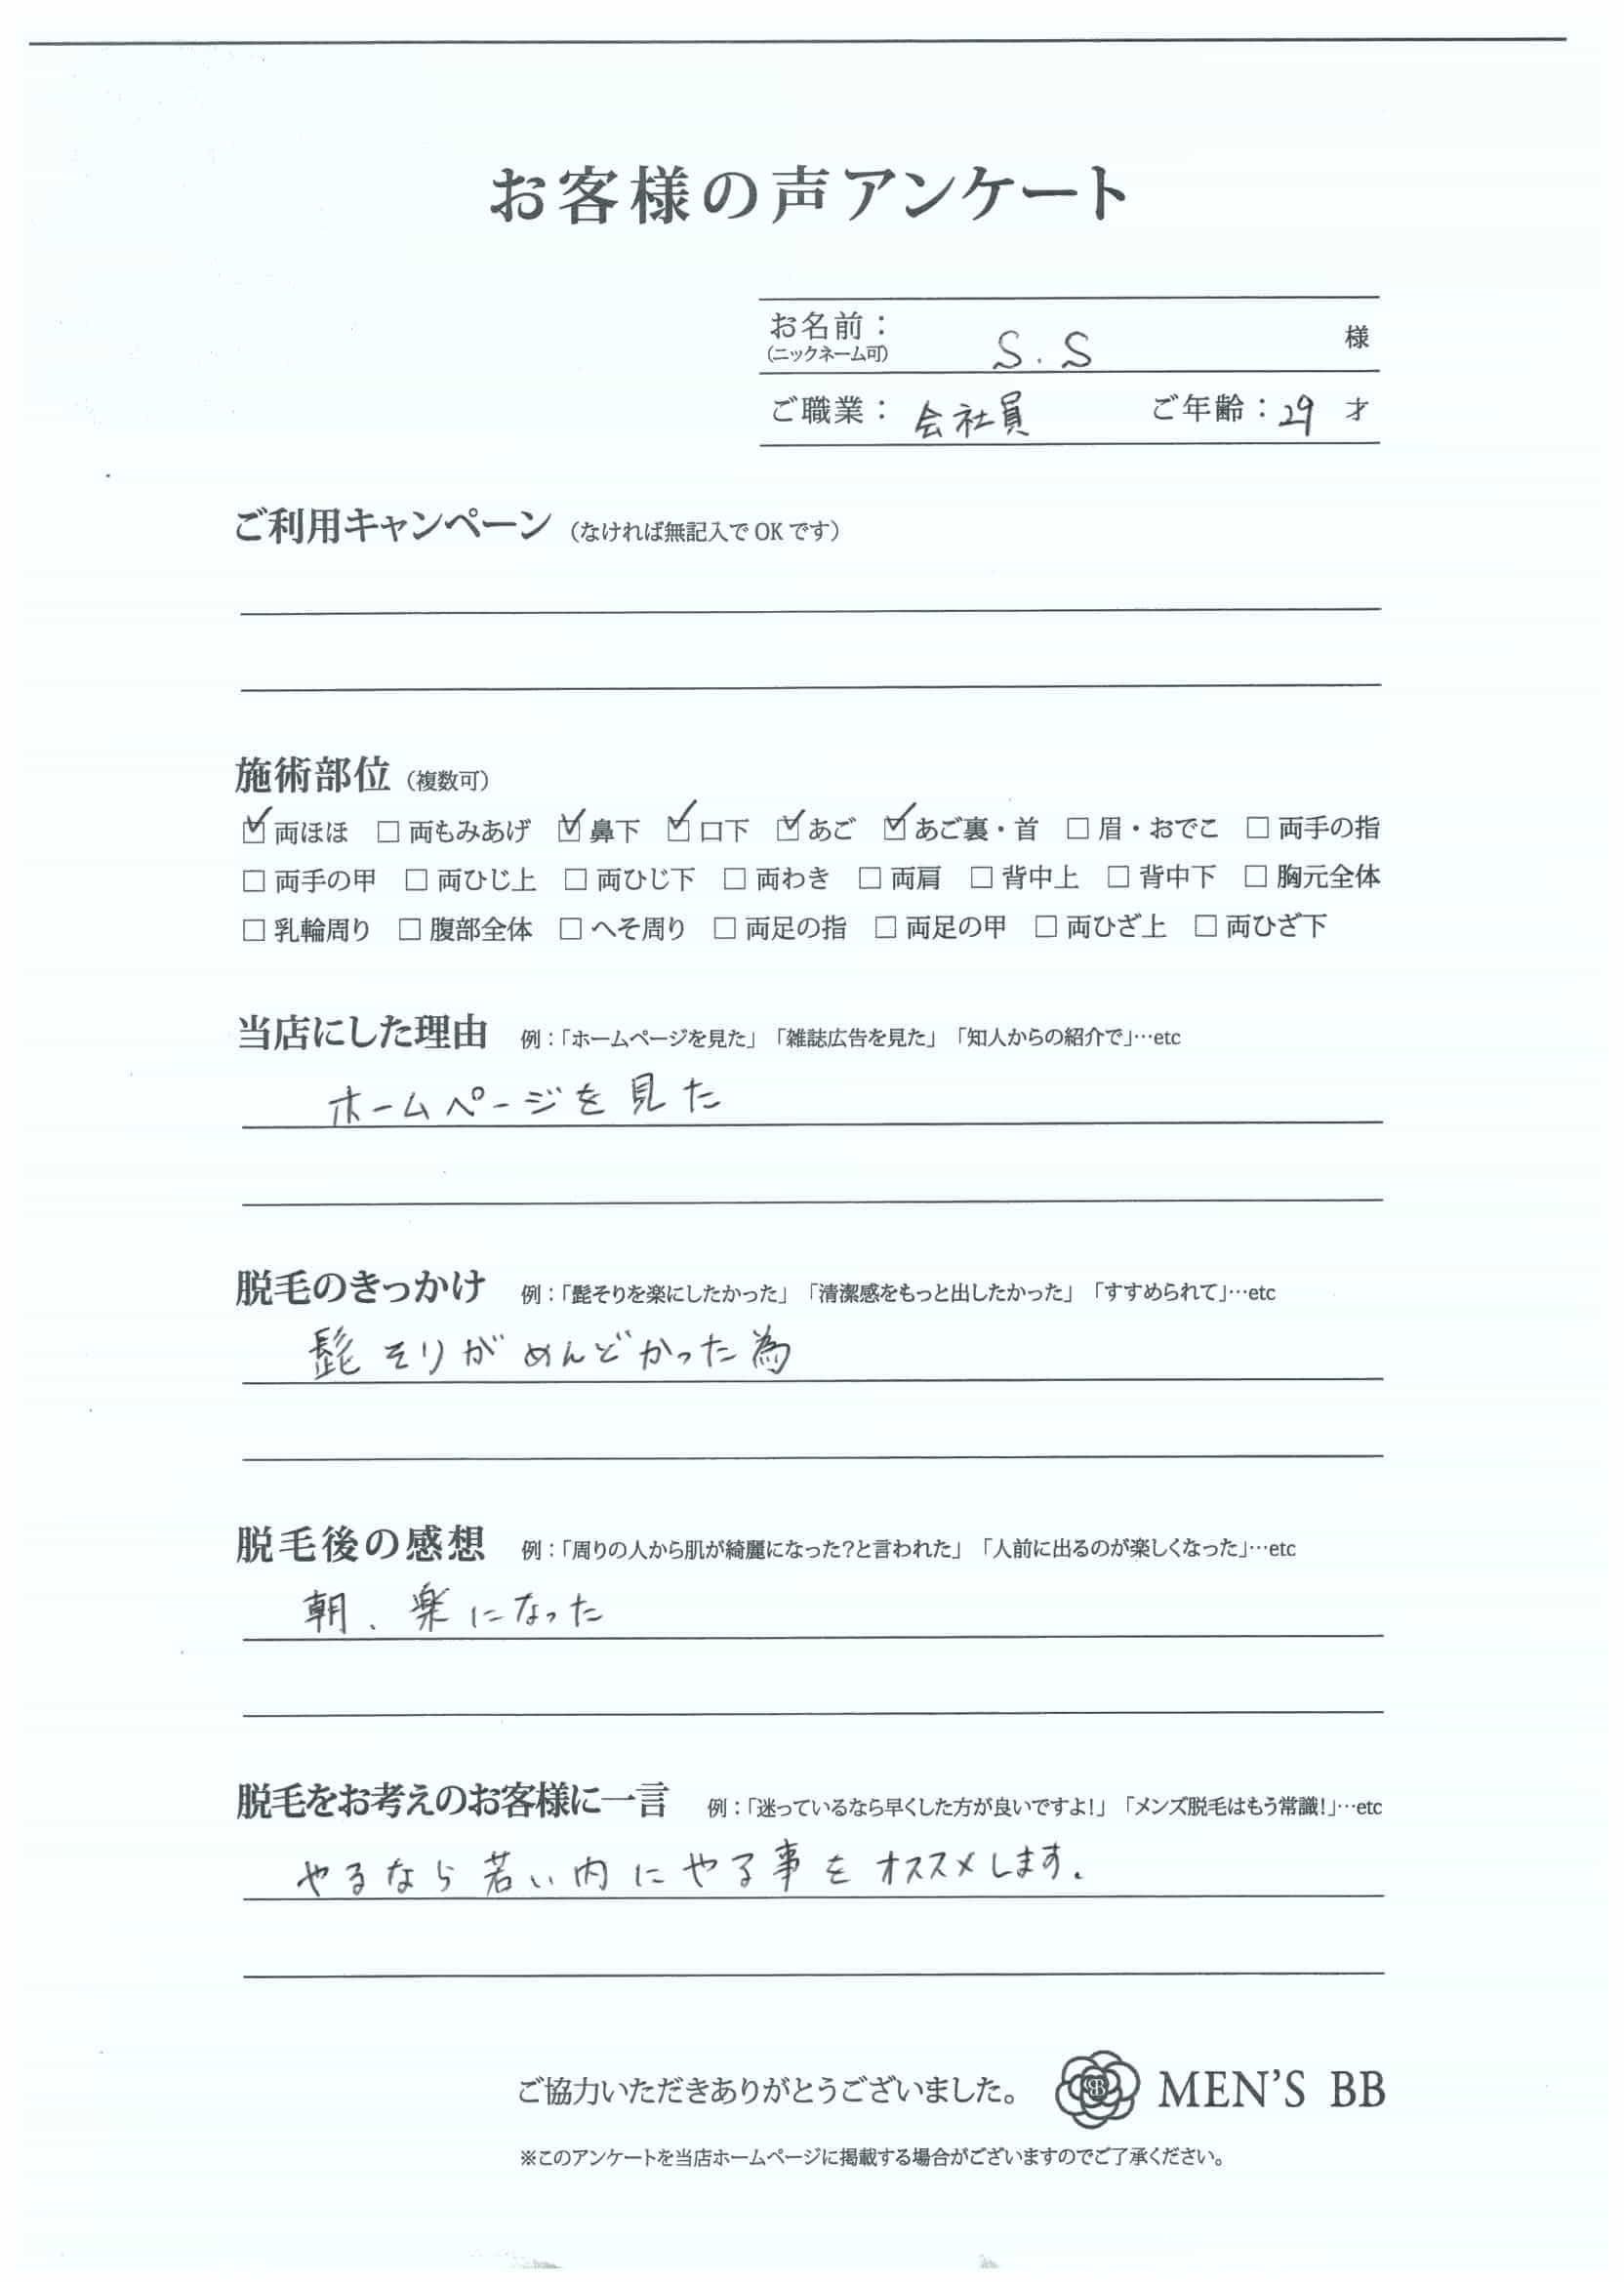 お客様の声アンケート
お名前： S.S 様
(ニックネーム可)
ご職業： 会社員 ご年齢：29 才
ご利用キャンペーン （なければ無記入でOKです）
施術部位 （複数可）
☑ 両ほほ □ 両もみあげ ☑ 鼻下 ☑ 口下 ☑ あご ☑ あご裏・首 □ 眉・おでこ □ 両手の指
□ 両手の甲 □ 両ひじ上 □ 両ひじ下 □ 両わき □ 両肩 □ 背中上 □ 背中下 □ 胸元全体
□ 乳輪周り □ 腹部全体 □ へそ周り □ 両足の指 □ 両足の甲 □ 両ひざ上 □ 両ひざ下
当店にした理由 例：「ホームページを見た」「雑誌広告を見た」「知人からの紹介で」…etc
ホームページを見た
脱毛のきっかけ 例：「髭そりを楽にしたかった」「清潔感をもっと出したかった」「すすめられて」…etc
髭そりがめんどかった為
脱毛後の感想 例：「周りの人から肌が綺麗になった?と言われた」「人前に出るのが楽しくなった」…etc
朝、楽になった
脱毛をお考えのお客様に一言 例：「迷っているなら早くした方が良いですよ!」「メンズ脱毛はもう常識!」…etc
やるなら若い内にやる事をオススメします.
ご協力いただきありがとうございました。 MEN'S BB
※このアンケートを当店ホームページに掲載する場合がございますのでご了承ください。